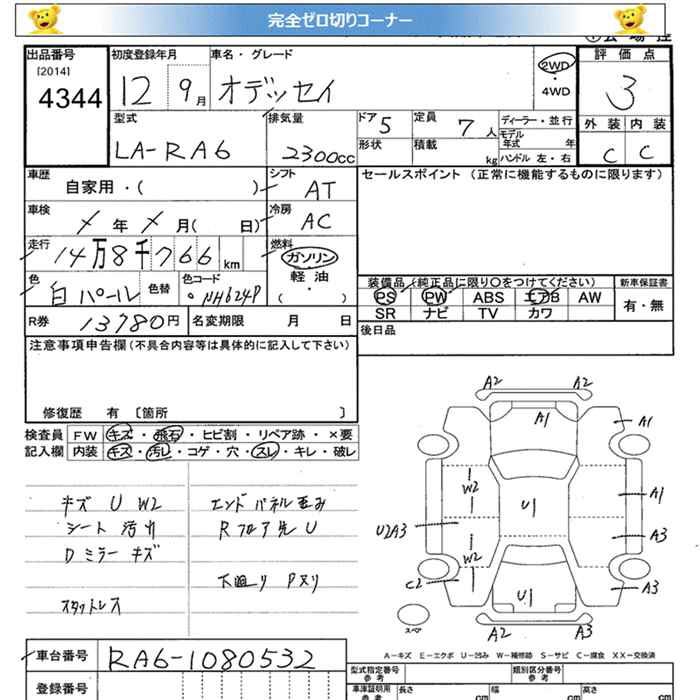 完全ゼロ切りコーナー
出品番号 初度登録年月 車名・グレード 2WD 評価点
[2014] 4344 12 9月 オデッセイ ・ 4WD 3
型式 排気量 ドア 5 定員 7人 ディーラー・並行 外装 内装
LA-RA6 2300cc 形状 積載 kg モデル年式 年 ハンドル 左・右 C C
車歴 自家用・( ) シフト AT セールスポイント (正常に機能するものに限ります)
車検 メ年メ月( 日) 冷房 AC
走行 14万8千766km 燃料 ガソリン
軽油
・( )
色 白パール 色替 色コード NH624P
装備品(純正品に限り○をつけてください) 新車保証書
PS PW ABS エアB AW 有・無
SR ナビ TV カワ
R券 13780円 名変期限 月 日
後日品
注意事項申告欄(不具合内容等は具体的に記入して下さい)
修復歴 有 〔箇所 〕
検査員 FW キズ・飛石・ヒビ割・リペア跡・×要
記入欄 内装 キズ・汚レ・コゲ・穴・スレ・キレ・破レ
キズ U W2 エンドパネル歪み
シート汚れ Rフロア先U
Dミラーキズ
下廻り Pヌリ
スタットレス
A2 A2
A1 A1
W2 U1 A1
U2A3 A3
W2
C2 U1 A3
A2 A3
スペア
A-キズ E-エクボ U-凹み W-補修跡 S-サビ C-腐食 XX-交換済
車台番号 RA6-1080532
型式指定番号 参考 類別区分番号 参考
登録番号 車庫証明用 参考 長さ cm 幅 cm 高さ cm